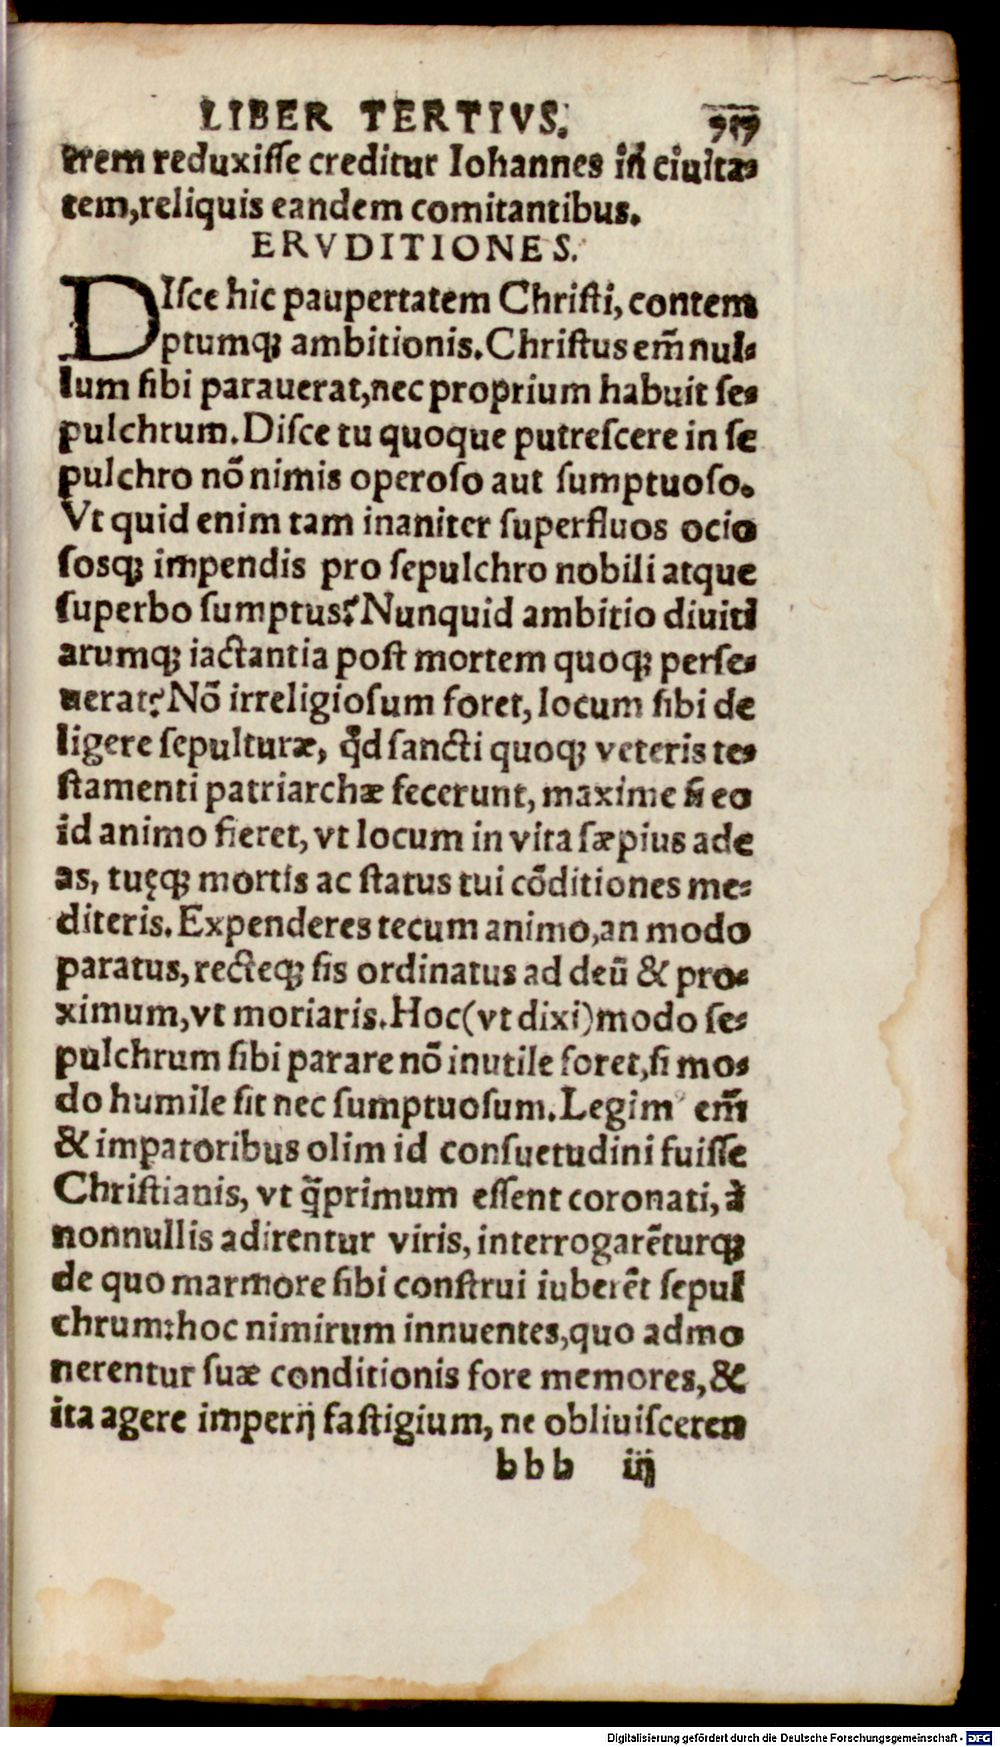 LIBER TERTIVS.
trem reduxiſſe creditur Iohannes in ciuita-
tem,reliquis eandem comitantibus.
ERVDITIONES.
DIſce hic paupertatem Chriſti, contem
ptumq; ambitionis.Chriſtus em̃ nul-
lum ſibi parauerat,nec proprium habuit ſe-
pulchrum.Diſce tu quoque putreſcere in ſe
pulchro nõ nimis operoſo aut ſumptuoſo.
Vt quid enim tam inaniter ſuperfluos ocio
ſosq; impendis pro ſepulchro nobili atque
ſuperbo ſumptus?Nunquid ambitio diuiti
arumq; iactantia poſt mortem quoq; perſe-
uerat?Nõ irreligioſum foret, locum ſibi de
ligere ſepulturæ, qd ſancti quoq; veteris te-
ſtamenti patriarchæ fecerunt, maxime ſi eo
id animo fieret, vt locum in vita ſæpius ade
as, tuęq; mortis ac ſtatus tui cõditiones me-
diteris.Expenderes tecum animo,an modo
paratus, recteq; ſis ordinatus ad deũ & pro-
ximum,vt moriaris.Hoc(vt dixi)modo ſe-
pulchrum ſibi parare nõ inutile foret,ſi mo-
do humile ſit nec ſumptuoſum.Legim⁹ em̃
& impatoribus olim id conſuetudini fuiſſe
Chriſtianis, vt q̃primum eſſent coronati, à
nonnullis adirentur viris, interrogarẽturq;
de quo marmore ſibi conſtrui iuberẽt ſepul
chrum:hoc nimirum innuentes,quo admo
nerentur ſuæ conditionis fore memores,&
ita agere imperij faſtigium, ne obliuiſceren
bbb iij
Digitalisierung gefördert durch die Deutsche Forschungsgemeinschaft - DFG